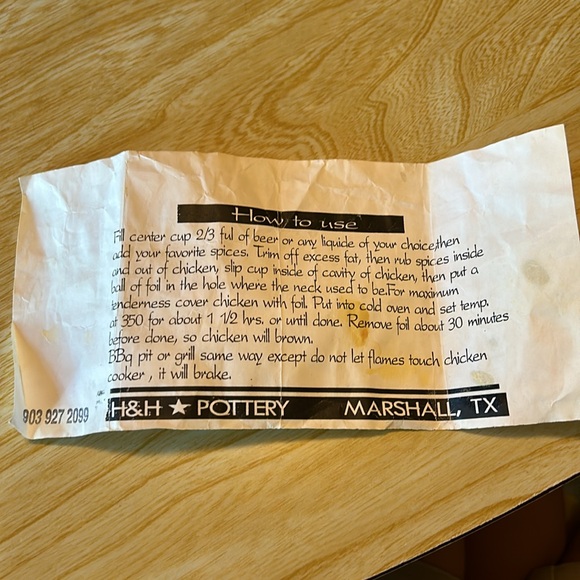 How to use
Fill center cup 2/3 ful of beer or any liquide of your choice,then
add your favorite spices. Trim off excess fat, then rub spices inside
and out of chicken, slip cup inside of cavity of chicken, then put a
ball of foil in the hole where the neck used to be.For maximum
tenderness cover chicken with foil. Put into cold oven and set temp.
at 350 for about 1 1/2 hrs. or until done. Remove foil about 30 minutes
before done, so chicken will brown.
BBq pit or grill same way except do not let flames touch chicken
cooker , it will brake.
903 927 2099
H&H ★ POTTERY MARSHALL, TX